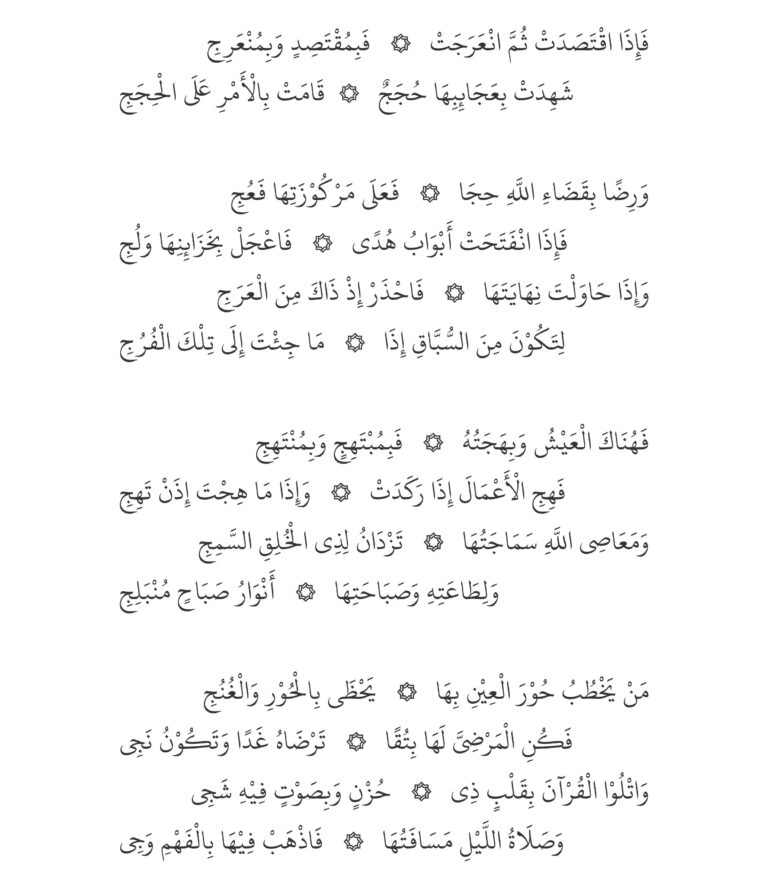 فَإِذَا اقْتَصَدَتْ ثُمَّ انْعَرَجَتْ ۞ فَبِمُقْتَصِدٍ وَبِمُنْعَرِجِ
شَهِدَتْ بِعَجَايِبِهَا حُجَجٌ ۞ قَامَتْ بِالْأَمْرِ عَلَى الْحِجَجِ
وَرِضًا بِقَضَاءِ اللَّهِ حِجَا ۞ فَعَلَى مَرْكُوْزَتِهَا فَعُجِ
فَإِذَا انْفَتَحَتْ أَبْوَابُ هُدًى ۞ فَاعْجَلْ بِخَزَايِنِهَا وَلُجِ
وَإِذَا حَاوَلْتَ نِهَايَتَهَا ۞ فَاحْذَرْ إِذْ ذَاكَ مِنَ الْعَرَجِ
لِتَكُوْنَ مِنَ السُّبَّاقِ إِذَا ۞ مَا جِئْتَ إِلَى تِلْكَ الْفُرُجِ
فَهُنَاكَ الْعَيْشُ وَبِهَجَتُهُ ۞ فَبِمُبْتَهِجٍ وَبِمُنْتَهِجِ
فَهِجِ الْأَعْمَالَ إِذَا رَكَدَتْ ۞ وَإِذَا مَا هِجْتَ إِذَنْ تَهِجِ
وَمَعَاصِى اللَّهِ سَمَاجَتُهَا ۞ تَزْدَانُ لِذِى الْخُلِقِ السَّمِجِ
وَلِطَاعَتِهِ وَصَبَاحَتِهَا ۞ أَنْوَارُ صَبَاحٍ مُنْبَلِجِ
مَنْ يَخْطُبُ حُوْرَ الْعِيْنِ بِهَا ۞ يَحْظَى بِالْحُوْرِ وَالْغُنُجِ
فَكُنِ الْمَرْضِىَّ لَهَا بِتُقًا ۞ تَرْضَاهُ غَدًا وَتَكُوْنُ نَجِى
وَاتْلُوْا الْقُرْآنَ بِقَلْبٍ ذِى ۞ حُزْنٍ وَبِصَوْتٍ فِيْهِ شَجِى
وَصَلَاةُ اللَّيْلِ مَسَافَتُهَا ۞ فَاذْهَبْ فِيْهَا بِالْفَهْمِ وَجِى